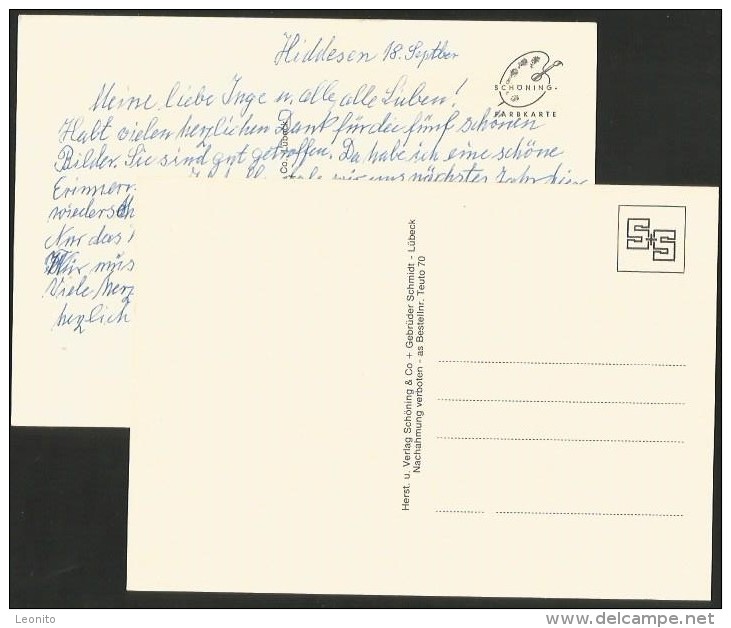 Hiddesen 18. Septber
SCHÖNING
FARBKARTE
Meine liebe Inge u. alle, alle Lieben!
Habt vielen herzlichen Dank für die fünf schönen
Bilder. Sie sind gut getroffen. Da habe ich eine schöne
Erinner
uns nächstes Jahr hier
wiederse
Nur das
Wir müs
Viele herz
herzlich
Co., Lübeck
S+S
Herst. u. Verlag Schöning & Co + Gebrüder Schmidt - Lübeck
Nachahmung verboten - as Bestellnr. Teuto 70
Leonito
www.delcampe.net